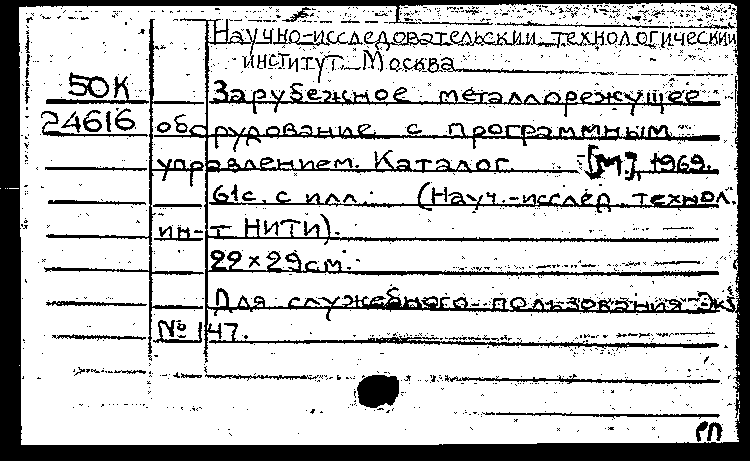 Научно-исследовательский технологический
институт. Москва
50К
Зарубежное металлорежущее
24616
оборудование с программным
управлением. Каталог. [М.], 1969.
61с. с илл. (Науч.-исслед. технол.
ин-т НИТИ).
22×29см.
Для служебного пользования Экз
№ 147.